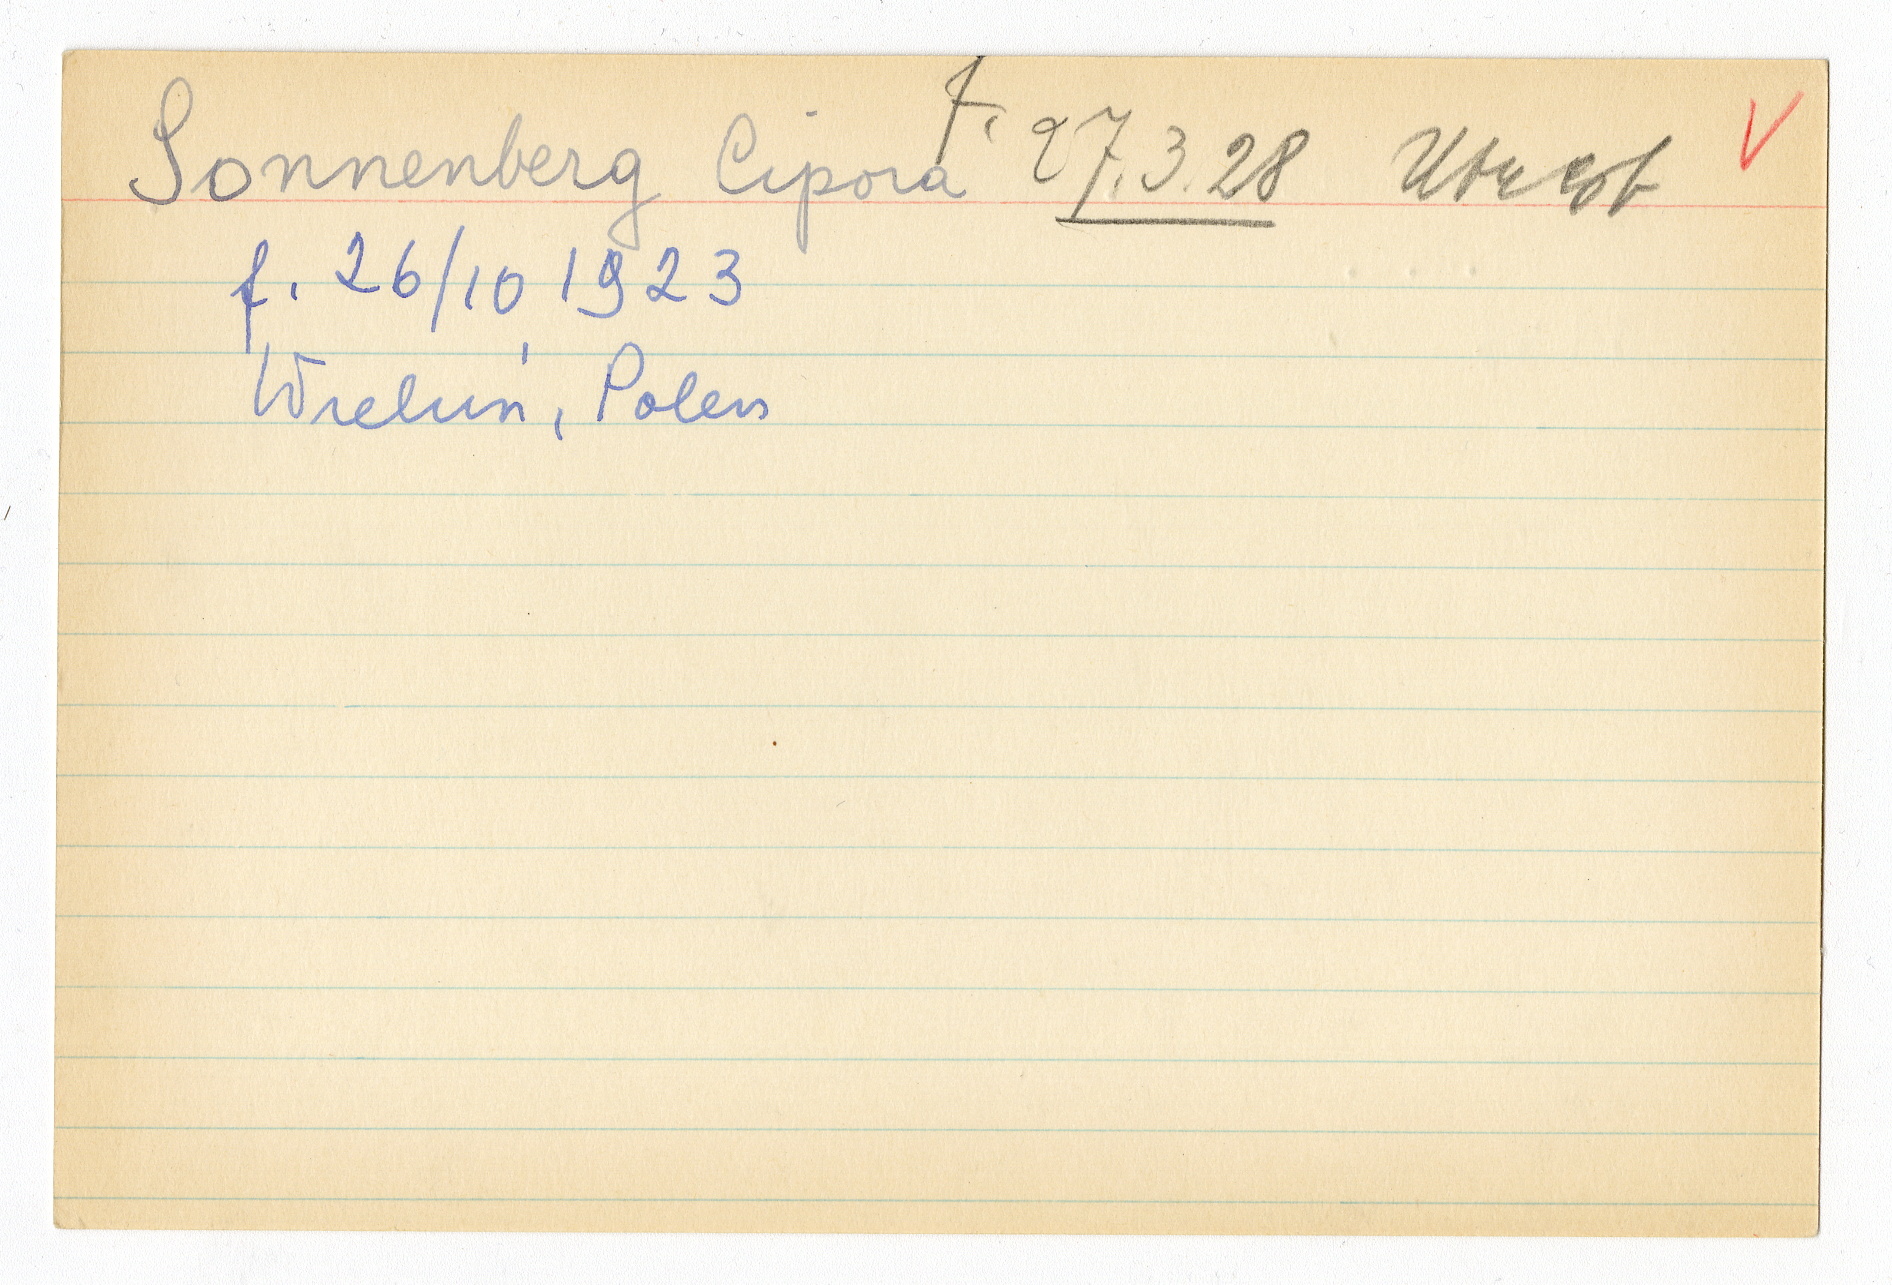 Sonnenberg Cipora f. 27.3.28
f. 26/10 1923
Wieluń, Polen